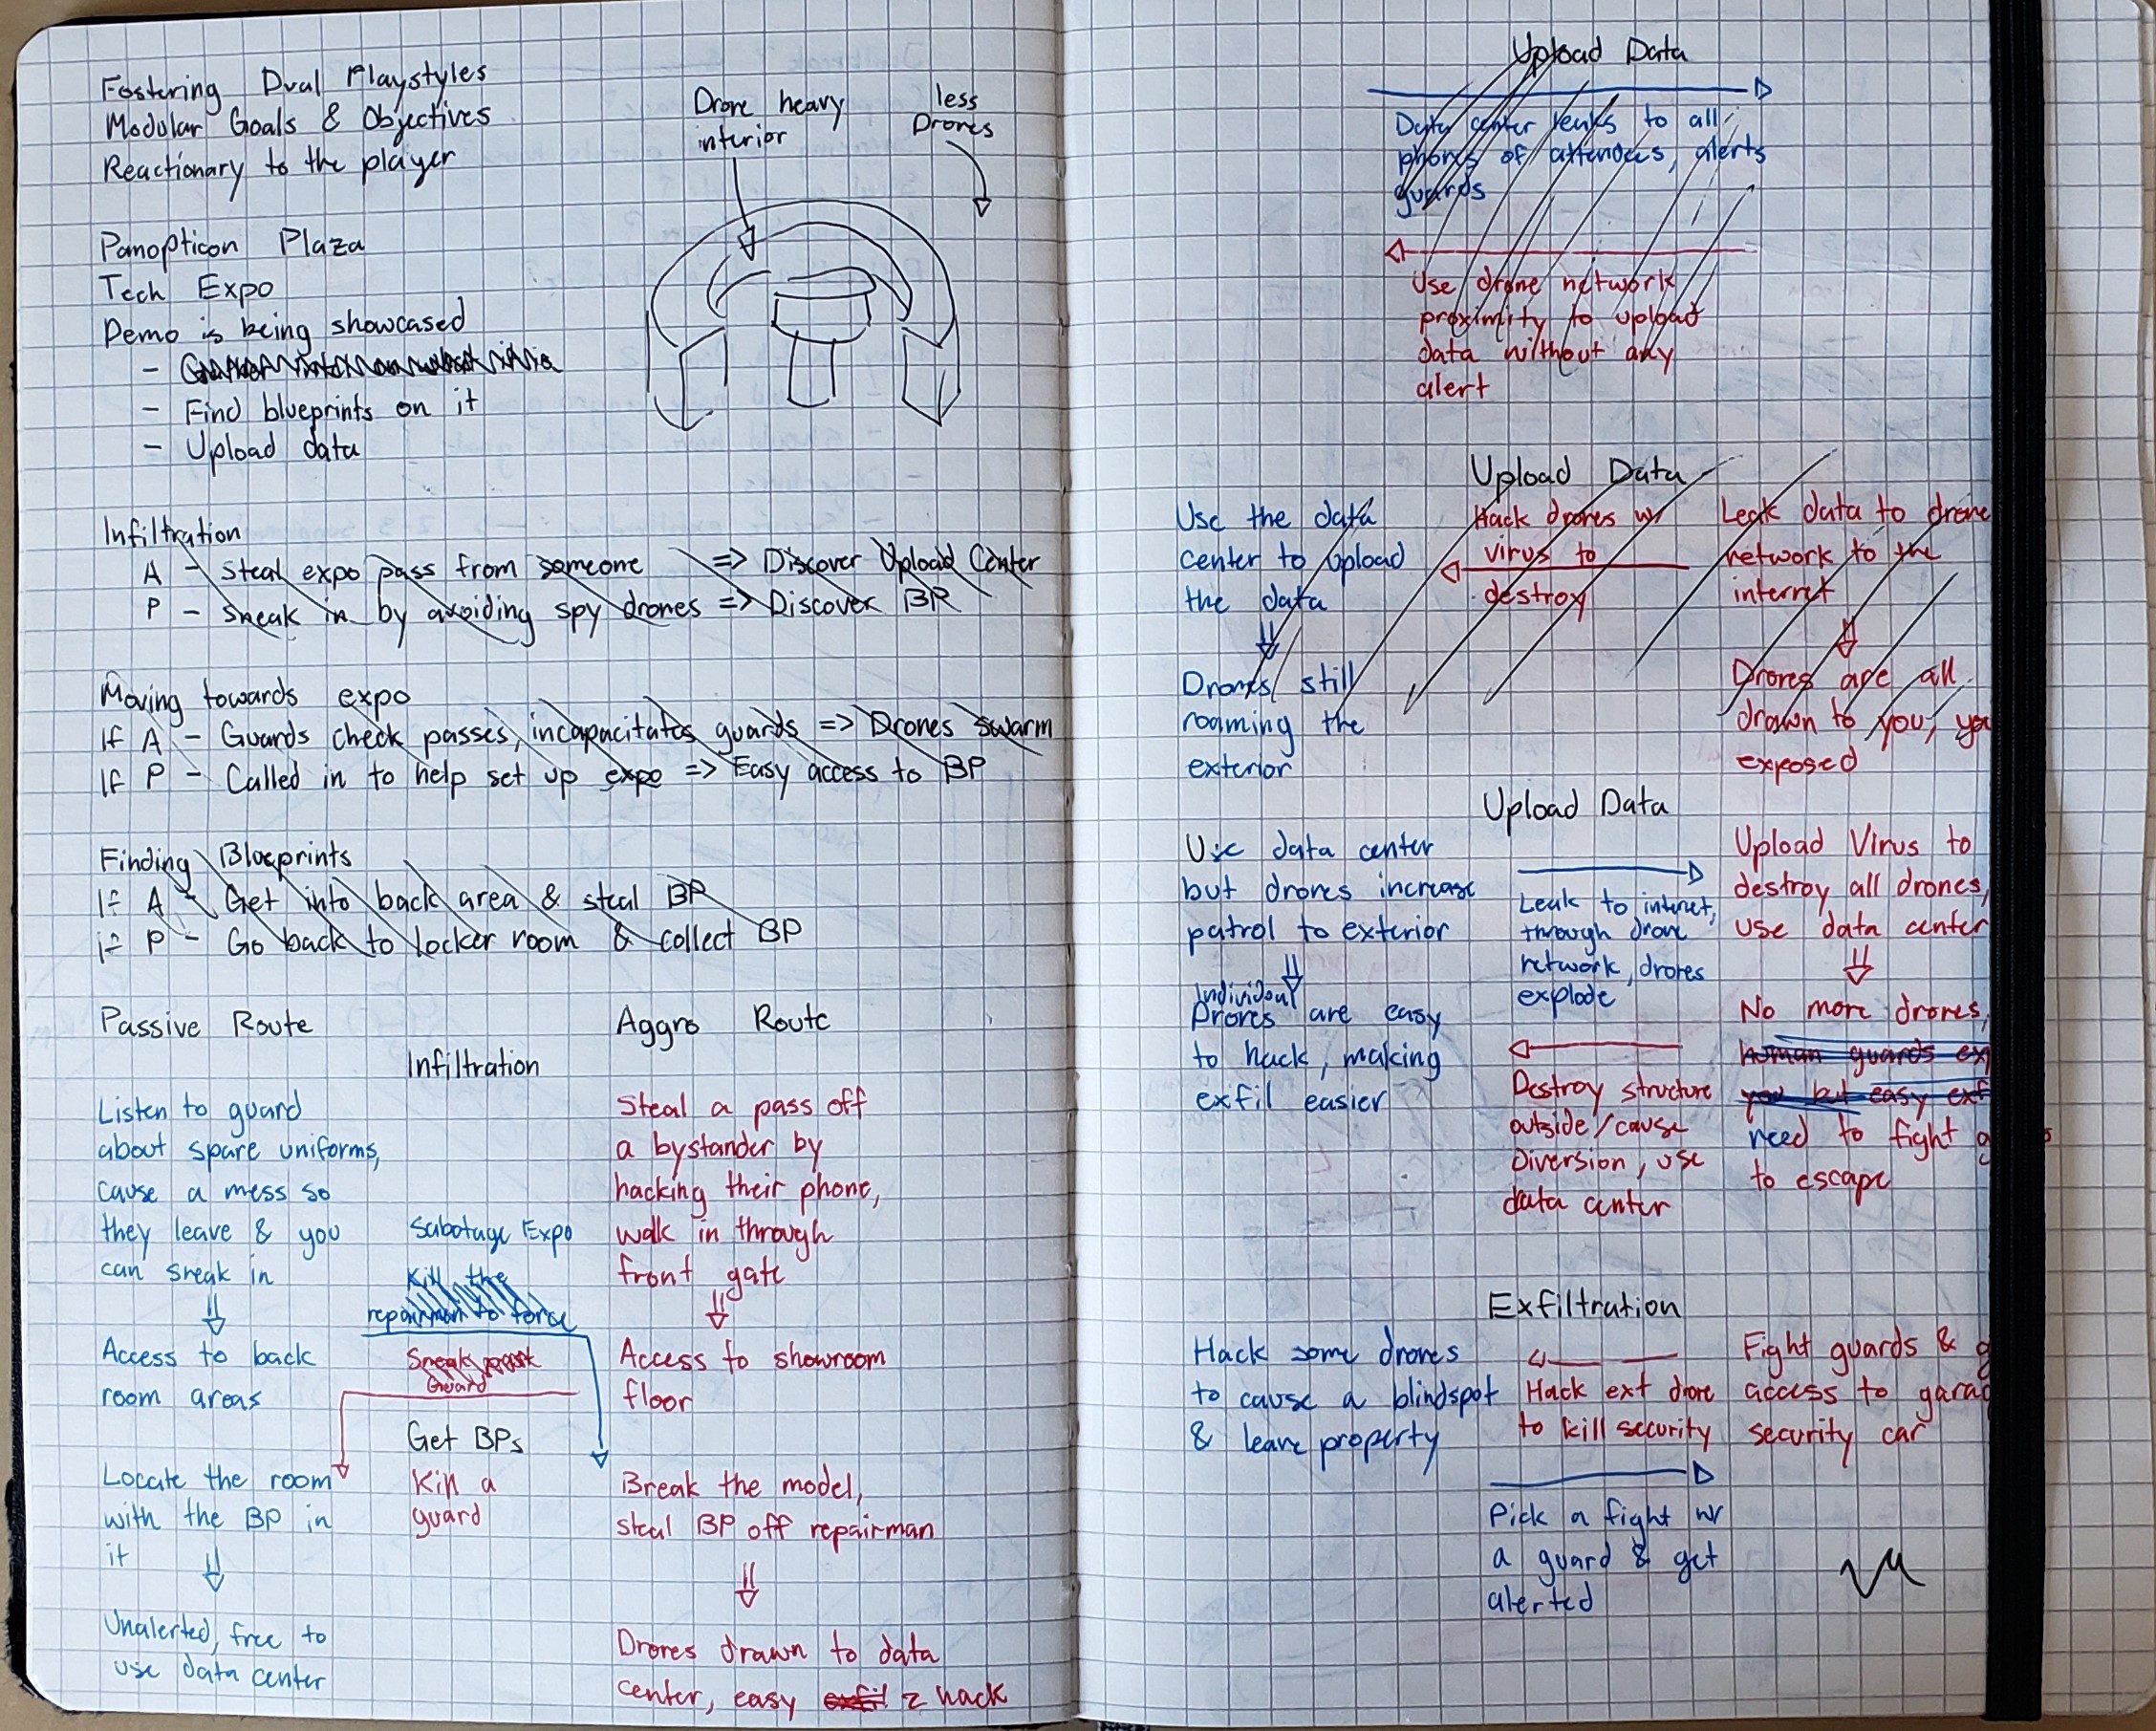 Fostering Dual Playstyles
Modular Goals & Objectives
Reactionary to the player
Drone heavy
interior
less
Drones
Panopticon Plaza
Tech Expo
Demo is being showcased
-
- Find blueprints on it
- Upload data
Infiltration
A - Steal expo pass from someone => Discover Upload Center
P - Sneak in by avoiding spy drones => Discover BR
Moving towards expo
If A - Guards check passes, incapacitates guards => Drones swarm
If P - Called in to help set up expo => Easy access to BP
Finding Blueprints
If A - Get into back area & steal BP
if P - Go back to locker room & collect BP
Passive Route
Aggro Route
Infiltration
Listen to guard
about spare uniforms,
cause a mess so
they leave & you
can sneak in
⇓
Access to back
room areas
Sabotage Expo
Kill the
repairman to force
Sneak past
Guard
Steal a pass off
a bystander by
hacking their phone,
walk in through
front gate
⇓
Access to showroom
floor
Get BPs
Locate the room
with the BP in
it
⇓
Unalerted, free to
use data center
Kill a
guard
Break the model,
steal BP off repairman
⇓
Drones drawn to data
center, easy exfil 2 hack
Upload Data
Data center leaks to all
phones of attendees, alerts
guards
Use drone network
proximity to upload
data without any
alert
Upload Data
Use the data
center to upload
the data
⇓
Drones still
roaming the
exterior
Hack drones w/
virus to
destroy
Leak data to drone
network to the
internet
⇓
Drones are all
drawn to you,
exposed
Upload Data
Use data center
but drones increase
patrol to exterior
⇓
Individual
Drones are easy
to hack, making
exfil easier
Leak to internet,
through drone
network, drones
explode
Destroy structure
outside/cause
Diversion, use
data center
Upload Virus to
destroy all drones,
use data center
⇓
No more drones,
human guards
you but easy
need to fight
to escape
Exfiltration
Hack some drones
to cause a blindspot
& leave property
Hack ext drone
to kill security
Pick a fight w/
a guard & get
alerted
Fight guards &
access to
security car